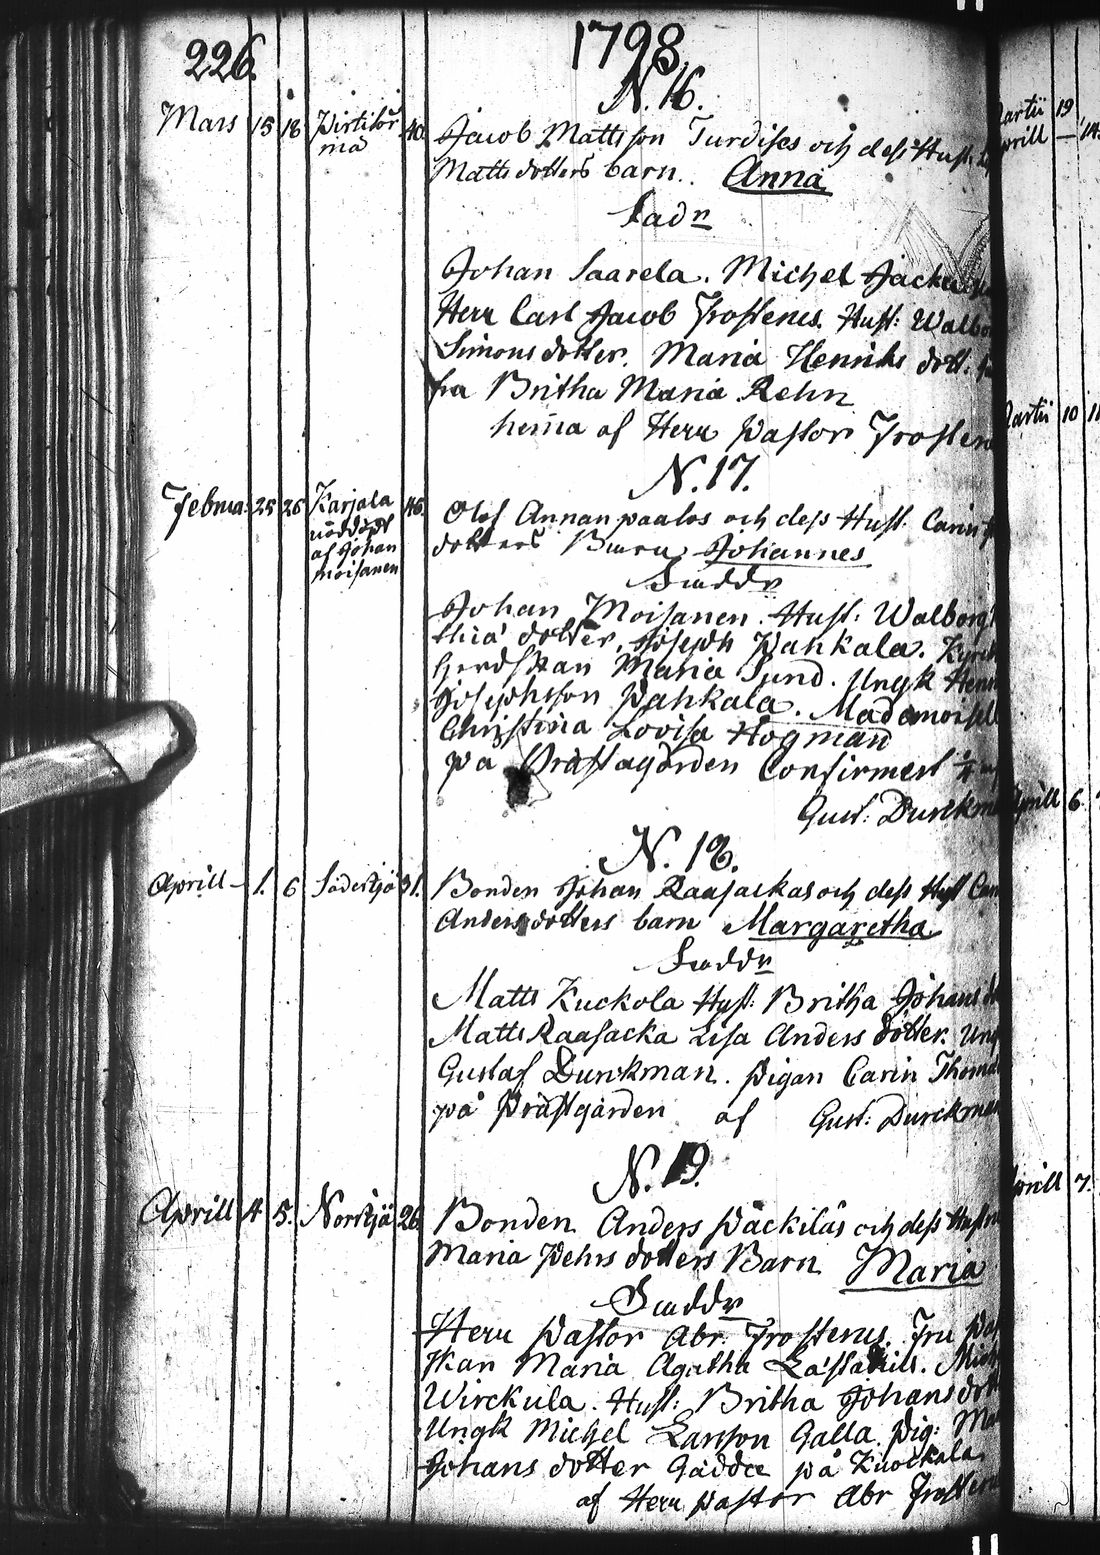 226.
1798.
N. 16.
Mars 15 18 40. Jacob Mattsson Turdises och dess Hust.
Matts dotters barn. Anna
Fadr
Johan Saarela. Michel
Herr Carl Jacob Frosterus. Hust: Walbor
Simons dotter. Maria Henriks dott.
fra Britha Maria Rehn
hema af Herr Pastor Froster
N. 17.
Februa: 25 26 Karjala 46. Olof Annanpaalos och dess Hust. Carin
nöddöpt
af Johan
Moisanen
dotters Barn Johannes
Faddr
Johan Moisanen. Hust: Walborg
thia dotter, Joseph Pahkala.
Maria Sund. Ungk Henr
Josephsson Pahkala. Mademoisell
Christina Lovisa Hogman
på Prästagården Confirmert
Gust: Durckm
N. 18.
Aprill 1. 6 31. Bonden Johan Raasackas och dess Hust
Anders dotters barn Margaretha
Faddr
Matts Kuckola Hust: Britha Johans
Matts Raasacka Lisa Anders dotter. Ung
Gustaf Durckman. Pigan Carin Thoma
på Prästgården af Gust: Durckman
N. 19.
Aprill 4. 5. Norrsjä 26. Bonden Anders Päckiläs och dess Hustru
Maria Pehrs dotters Barn Maria
Faddr
Herr Pastor Abr. Frosterus. Fru Pa
skan Maria Agatha Mich
Wirckula. Hust: Britha Johans dott
Ungk Michel Larsson Galla. Pig: Ma
Johans dotter Gädda på Kuockala
af Herr Pastor Abr Froster
Martii 19
Aprill 14
Martii 10 11
Aprill 6.
Aprill 7.